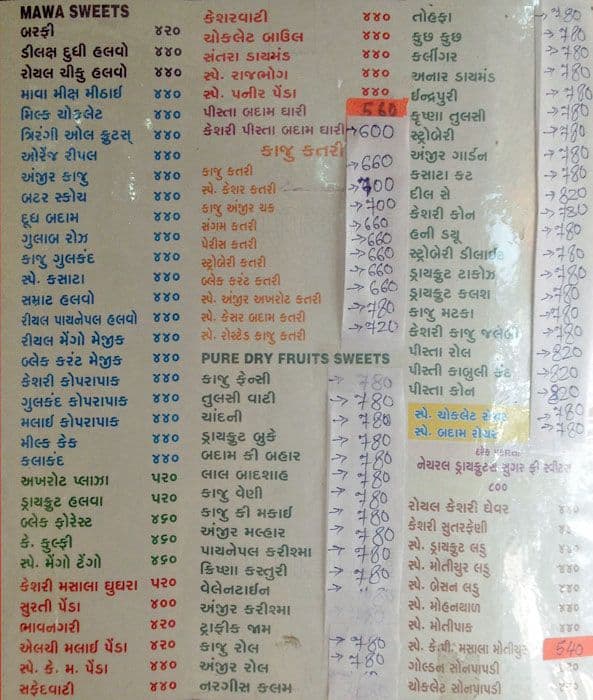 MAWA SWEETS
બરફી ૪૨૦
ડીલક્ષ દુધી હલવો ૪૪૦
રોયલ ચીકુ હલવો ૪૪૦
માવા મીક્ષ મીઠાઈ ૪૪૦
મિલ્ક ચોકલેટ ૪૪૦
ત્રિરંગી ઓલ ફ્રુટસ્ ૪૪૦
ઓરેંજ રીપલ ૪૪૦
અંજીર કાજુ ૪૪૦
બટર સ્કોચ ૪૪૦
દૂધ બદામ ૪૪૦
ગુલાબ રોઝ ૪૪૦
કાજુ ગુલકંદ ૪૪૦
સ્પે. કસાટા ૪૪૦
સમ્રાટ હલવો ૪૪૦
રીયલ પાયનેપલ હલવો ૪૪૦
રીયલ મેંગો મેજીક ૪૪૦
બ્લેક કરંટ મેજીક ૪૪૦
કેશરી કોપરાપાક ૪૪૦
ગુલકંદ કોપરાપાક ૪૪૦
મલાઈ કોપરાપાક ૪૪૦
મીલ્ક કેક ૪૪૦
કલાકંદ ૪૪૦
અખરોટ પ્લાઝા ૫૨૦
ડ્રાયફ્રુટ હલવા ૫૨૦
બ્લેક ફોરેસ્ટ ૪૬૦
કે. કુલ્ફી ૪૬૦
સ્પે. મેંગો ટેંગો ૪૬૦
કેશરી મસાલા ઘુઘરા ૫૨૦
સુરતી પેંડા ૪૦૦
ભાવનગરી ૪૨૦
એલચી મલાઈ પેંડા ૪૪૦
સ્પે. કે. મ. પેંડા ૪૪૦
સફેદવાટી ૪૪૦
કેશરવાટી ૪૪૦
ચોકલેટ બાઉલ ૪૪૦
સંતરા ડાયમંડ ૪૪૦
સ્પે. રાજભોગ ૪૪૦
સ્પે. પનીર પેંડા ૪૪૦
પીસ્તા બદામ ઘારી 560
કેશરી પીસ્તા બદામ ઘારી →600
કાજુ કતરી
કાજુ કતરી →660
સ્પે. કેશર કતરી →700
કાજુ અંજીર ચક →700
સંગમ કતરી →660
પેરીસ કતરી →660
સ્ટ્રોબેરી કતરી →660
બ્લેક કરંટ કતરી →660
સ્પે. અંજીર અખરોટ કતરી →780
સ્પે. કેસર બદામ કતરી →720
સ્પે. રોસ્ટેડ કાજુ કતરી
PURE DRY FRUITS SWEETS
કાજુ ફેન્સી → 780
તુલસી વાટી → 780
ચાંદની → 780
ડ્રાયફ્રુટ બુકે → 780
બદામ કી બહાર → 780
લાલ બાદશાહ → 780
કાજુ વેણી → 780
કાજુ કી મકાઈ → 780
અંજીર મલ્હાર → 780
પાયનેપલ કરીશ્મા → 780
ક્રિષ્ણા કસ્તુરી → 780
વેલેનટાઈન →
અંજીર કરીશ્મા
ટ્રાફીક જામ
કાજુ રોલ → 780
અંજીર રોલ → 780
નરગીસ કલમ
તોહફા →780
કુછ કુછ →780
કલીંગર →780
અનાર ડાયમંડ →780
ઈન્દ્રપુરી →780
કૃષ્ણા તુલસી →780
સ્ટ્રોબેરી →780
અંજીર ગાર્ડન →780
કસાટા કટ →780
દીલ સે →820
કેશરી કોન →780
હની ડ્યૂ →780
સ્ટ્રોબેરી ડીલાઈટ →780
ડ્રાયફ્રુટ ટાકોઝ →780
ડ્રાયફ્રુટ કલશ →780
કાજુ મટકા →780
કેશરી કાજુ જલેબી →780
પીસ્તા રોલ →820
પીસ્તી કાબુલી કટ →820
પીસ્તા કોન →820
સ્પે. ચોકલેટ રોયર →780
સ્પે. બદામ રોયર →780
નેચરલ ડ્રાયફ્રુટસ સુગર ફ્રી સ્વીટસ
૮૦૦
રોયલ કેશરી ઘેવર ૪૪૦
કેશરી સુતરફેણી
સ્પે. ડ્રાયફ્રુટ લડુ
સ્પે. મોતીચુર લડુ
સ્પે. બેસન લડુ
સ્પે. મોહનથાળ ૪૪૦
સ્પે. મોતીપાક ૪૪૦
સ્પે. કે.પી. મસાલા મોતીચુર 540
ગોલ્ડન સોનપાપડી
ચોકલેટ સોનપાપડી ૪૪૦